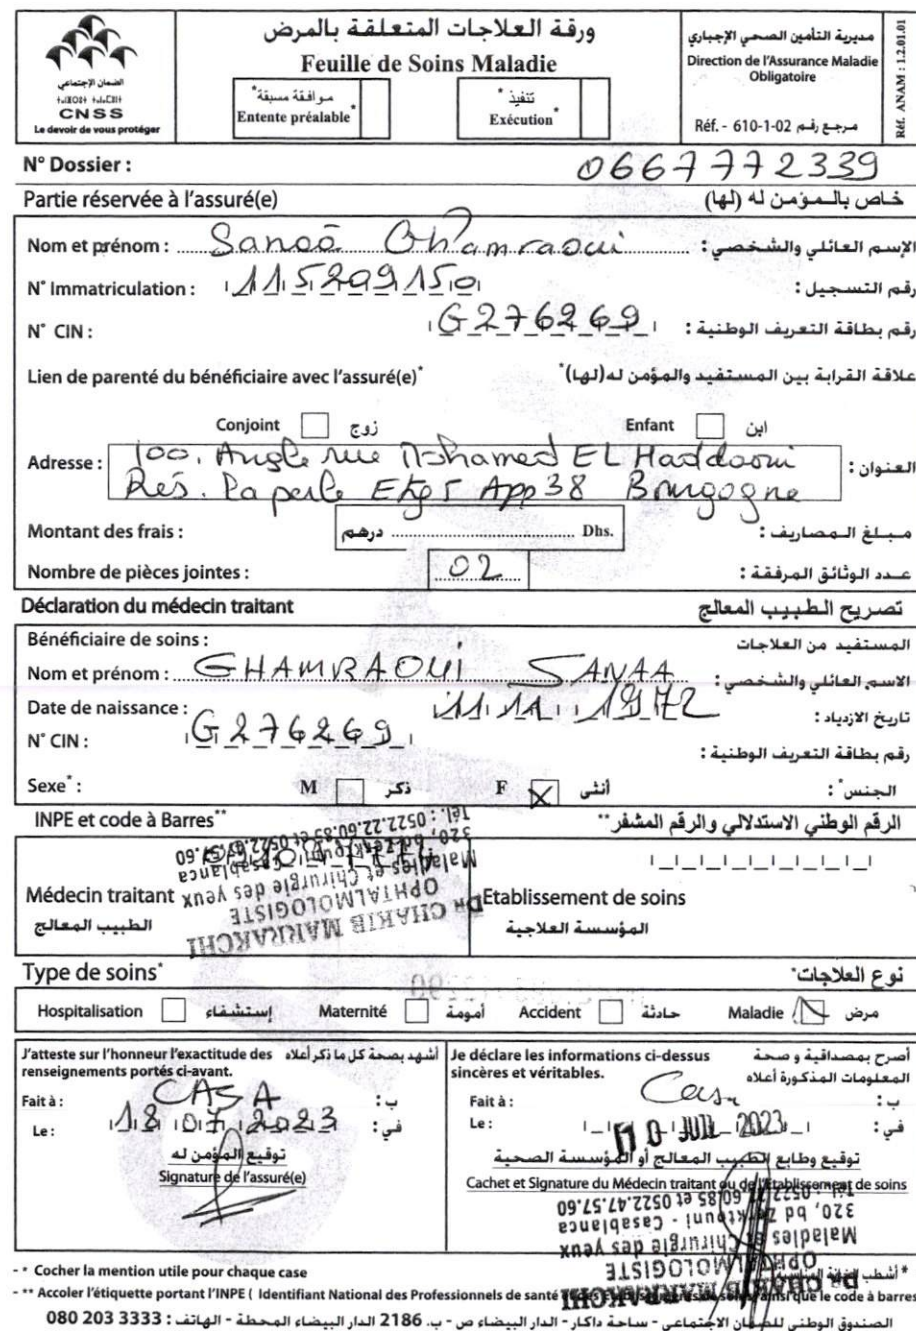 الضمان الإجتماعي
CNSS
Le devoir de vous protéger
ورقة العلاجات المتعلقة بالمرض
Feuille de Soins Maladie
موافقة مسبقة*
Entente préalable*
تنفيذ*
Exécution*
مديرية التأمين الصحي الإجباري
Direction de l'Assurance Maladie Obligatoire
Réf. - 610-1-02 مرجع رقم
Réf. ANAM : 1.2.01.01
N° Dossier : 06677772339
Partie réservée à l'assuré(e) خاص بالمؤمن له (لها)
Nom et prénom : Sanaa Ghamraoui الإسم العائلي والشخصي :
N° Immatriculation : 115209150 رقم التسجيل :
N° CIN : G276269 رقم بطاقة التعريف الوطنية :
Lien de parenté du bénéficiaire avec l'assuré(e)* علاقة القرابة بين المستفيد والمؤمن له(لها)*
Conjoint زوج Enfant ابن
Adresse : 100, Angle rue Mohamed EL Haddaoui العنوان :
Rés. La perle Etg 5 App 38 Bourgogne
Montant des frais : درهم Dhs. مبلغ المصاريف :
Nombre de pièces jointes : 02 عدد الوثائق المرفقة :
Déclaration du médecin traitant تصريح الطبيب المعالج
Bénéficiaire de soins : المستفيد من العلاجات
Nom et prénom : GHAMRAOUI SANAA الاسم العائلي والشخصي :
Date de naissance : 11 11 1972 تاريخ الازدياد :
N° CIN : G276269 رقم بطاقة التعريف الوطنية :
Sexe* : M ذكر F أنثى الجنس* :
INPE et code à Barres** الرقم الوطني الاستدلالي والرقم المشفر**
Médecin traitant
الطبيب المعالج
Dr CHAKIB MARRAKCHI
OPHTALMOLOGISTE
Maladies et Chirurgie des yeux
320, bd Zerktouni - Casablanca
Tél. : 0522.22.60.85 et 0522.47.57.60
Etablissement de soins
المؤسسة العلاجية
Type de soins* نوع العلاجات*
Hospitalisation إستشفاء Maternité أمومة Accident حادثة Maladie مرض
J'atteste sur l'honneur l'exactitude des renseignements portés ci-avant. أشهد بصحة كل ما ذكر أعلاه
Fait à : CASA ب :
Le : 18 07 2023 في :
توقيع المؤمن له
Signature de l'assuré(e)
Je déclare les informations ci-dessus sincères et véritables. أصرح بمصداقية و صحة المعلومات المذكورة أعلاه
Fait à : Casa ب :
Le : 10 JUIL 2023 في :
توقيع وطابع الطبيب المعالج أو المؤسسة الصحية
Cachet et Signature du Médecin traitant ou de l'Etablissement de soins
Dr CHAKIB MARRAKCHI
OPHTALMOLOGISTE
Maladies et Chirurgie des yeux
320, bd Zerktouni - Casablanca
Tél. : 0522.22.60.85 et 0522.47.57.60
- * Cocher la mention utile pour chaque case
- ** Accoler l'étiquette portant l'INPE ( Identifiant National des Professionnels de santé ainsi que le code à barres
الصندوق الوطني للضمان الاجتماعي - ساحة داكار - الدار البيضاء ص - ب. 2186 الدار البيضاء المحطة - الهاتف : 3333 203 080